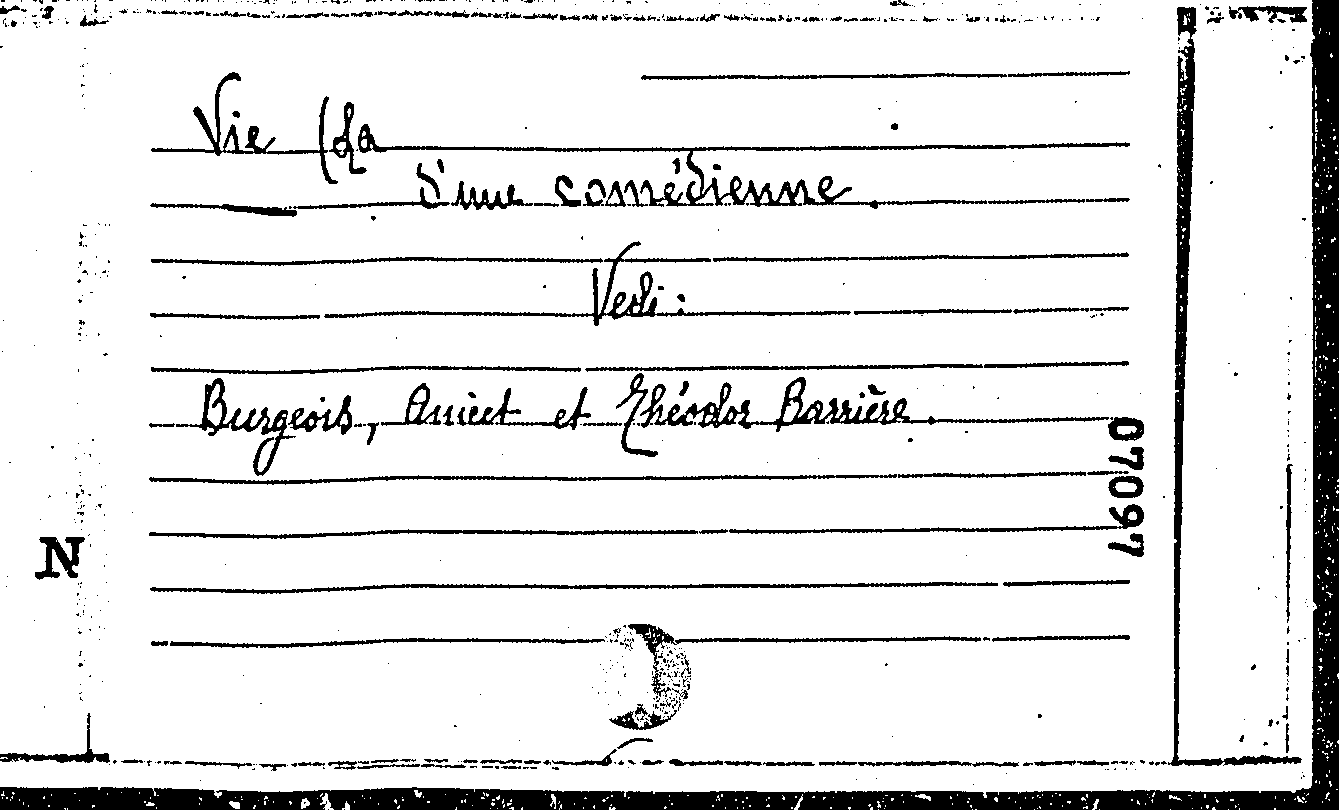 Vie (La
d'une comédienne.
Vedi:
Burgeois, Anicet et Théodor Barrière.
07097
N